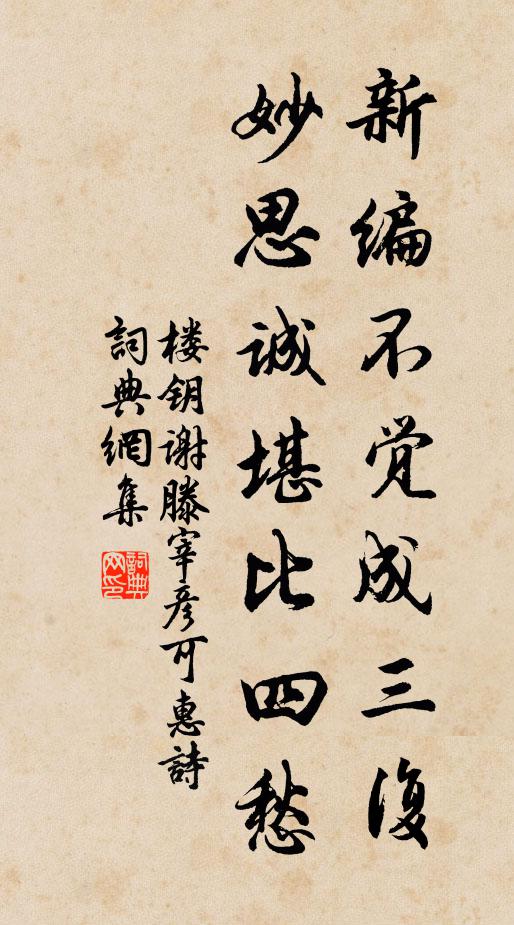 新编不觉成三復
妙思诚堪比四愁
楼钥谢滕宰彦可惠詩
詞典網集
詞典网印